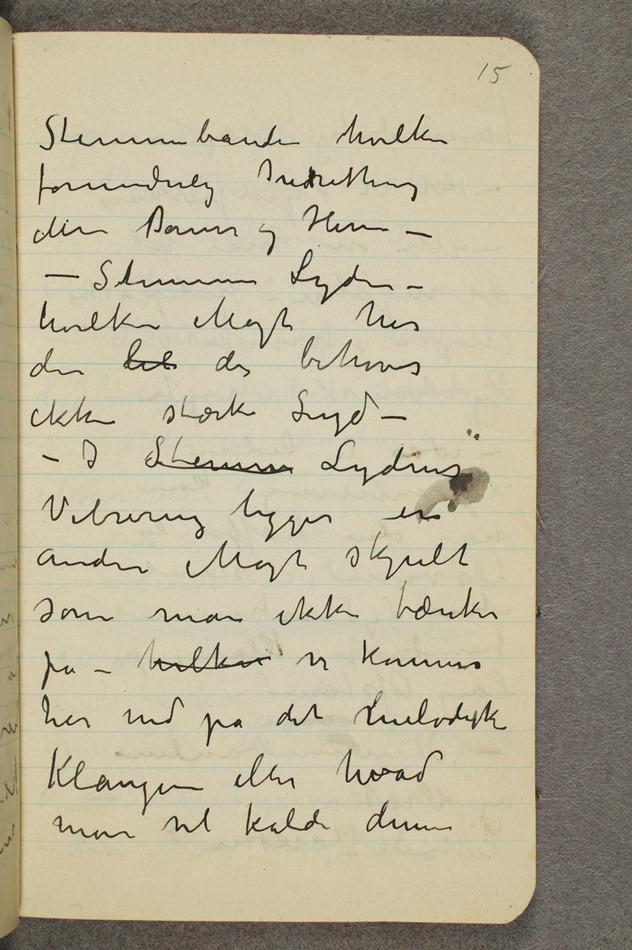 15
Stemmebånden hvilken
forunderlig Indretning
den Danner
— Stemmen Lyden —
hvilken Magt har
den lel der behøves
ikke stærk Lyd —
— I Stemme Lydens
Vibrering ligger en
anden Magt skjult
som man ikke tænker
på — hvilken vi kommer
her ind på det melodiske
Klangen eller hvad
man vil kalde denne